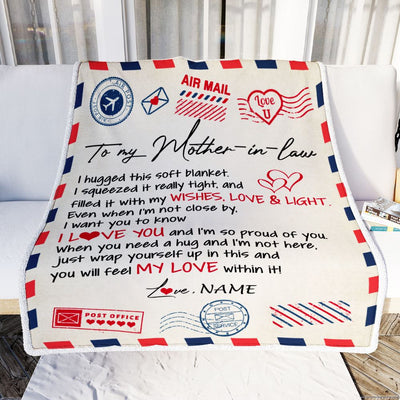 AIR MAIL
Love U
To my Mother-in-law
I hugged this soft blanket.
I squeezed it really tight, and
filled it with my WISHES, LOVE & LIGHT.
Even when I'm not close by.
I want you to know
I L❤VE YOU and I'm so proud of you.
When you need a hug and I'm not here,
just wrap yourself up in this and
you will feel MY LOVE within it!
Love, NAME
POST OFFICE
POST
SERVICE